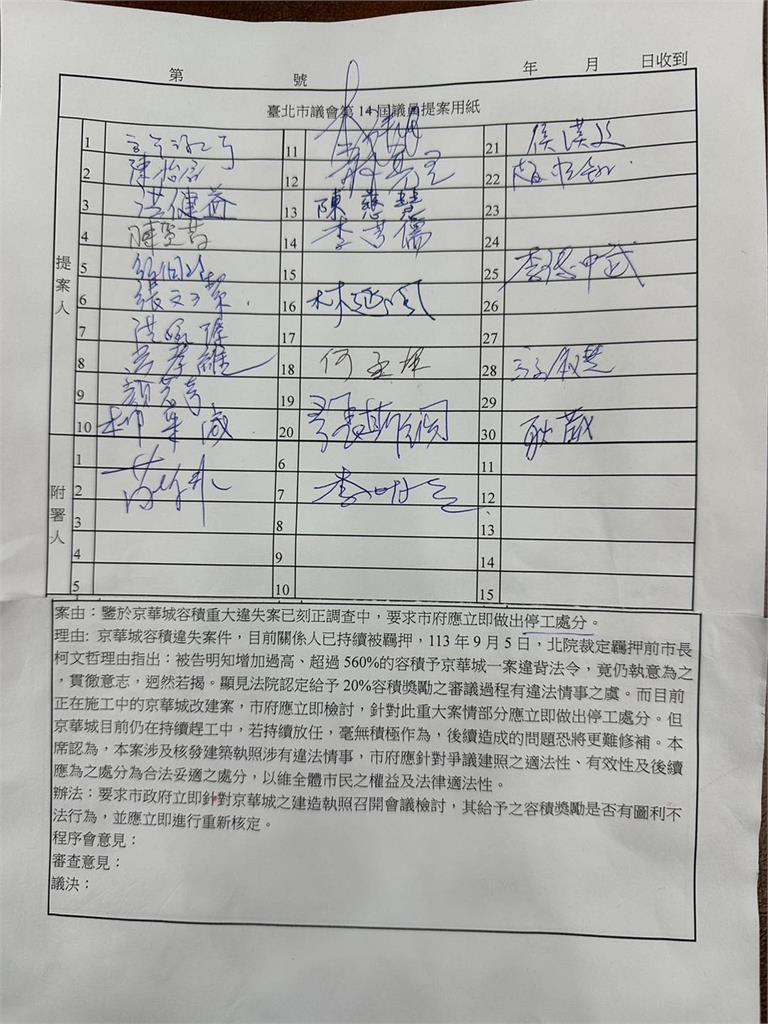 第 號 年 月 日收到
臺北市議會第14屆議員提案用紙
提案人
1 11 21
2 陳怡君 12 22
3 洪健益 13 陳慈慧 23
4 14 24
5 15 25
6 張文潔 16 林延鳳 26
7 洪婉臻 17 27
8 18 何孟樺 28
9 顏若芳 19 29
10 20 30 耿葳
附署人
1 6 11
2 苗博雅 7 12
3 8 13
4 9 14
5 10 15
案由：鑒於京華城容積重大違失案已刻正調查中，要求市府應立即做出停工處分。
理由: 京華城容積違失案件，目前關係人已持續被羈押，113年9月5日，北院裁定羈押前市長
柯文哲理由指出：被告明知增加過高、超過560%的容積予京華城一案違背法令，竟仍執意為之
，貫徹意志，迥然若揭。顯見法院認定給予20%容積獎勵之審議過程有違法情事之虞。而目前
正在施工中的京華城改建案，市府應立即檢討，針對此重大案情部分應立即做出停工處分。但
京華城目前仍在持續趕工中，若持續放任，毫無積極作為，後續造成的問題恐將更難修補。本
席認為，本案涉及核發建築執照涉有違法情事，市府應針對爭議建照之適法性、有效性及後續
應為之處分為合法妥適之處分，以維全體市民之權益及法律適法性。
辦法：要求市政府立即針對京華城之建造執照召開會議檢討，其給予之容積獎勵是否有圖利不
法行為，並應立即進行重新核定。
程序會意見：
審查意見：
議決：